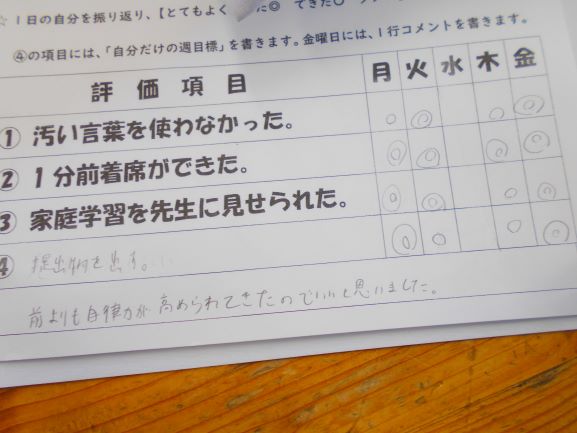 ☆1日の自分を振り返り、【とてもよく た◎ できた○
④の項目には、「自分だけの週目標」を書きます。金曜日には、1行コメントを書きます。
評価項目 月 火 水 木 金
① 汚い言葉を使わなかった。 ○ ◎ ○ ◎
② 1分前着席ができた。 ◎ ◎ ◎ ◎
③ 家庭学習を先生に見せられた。 ◎ ◎ ○ ◎
④ 提出物を出す。 ◎ ○ ○ ◎
前よりも自律力が高められてきたのでいいと思いました。